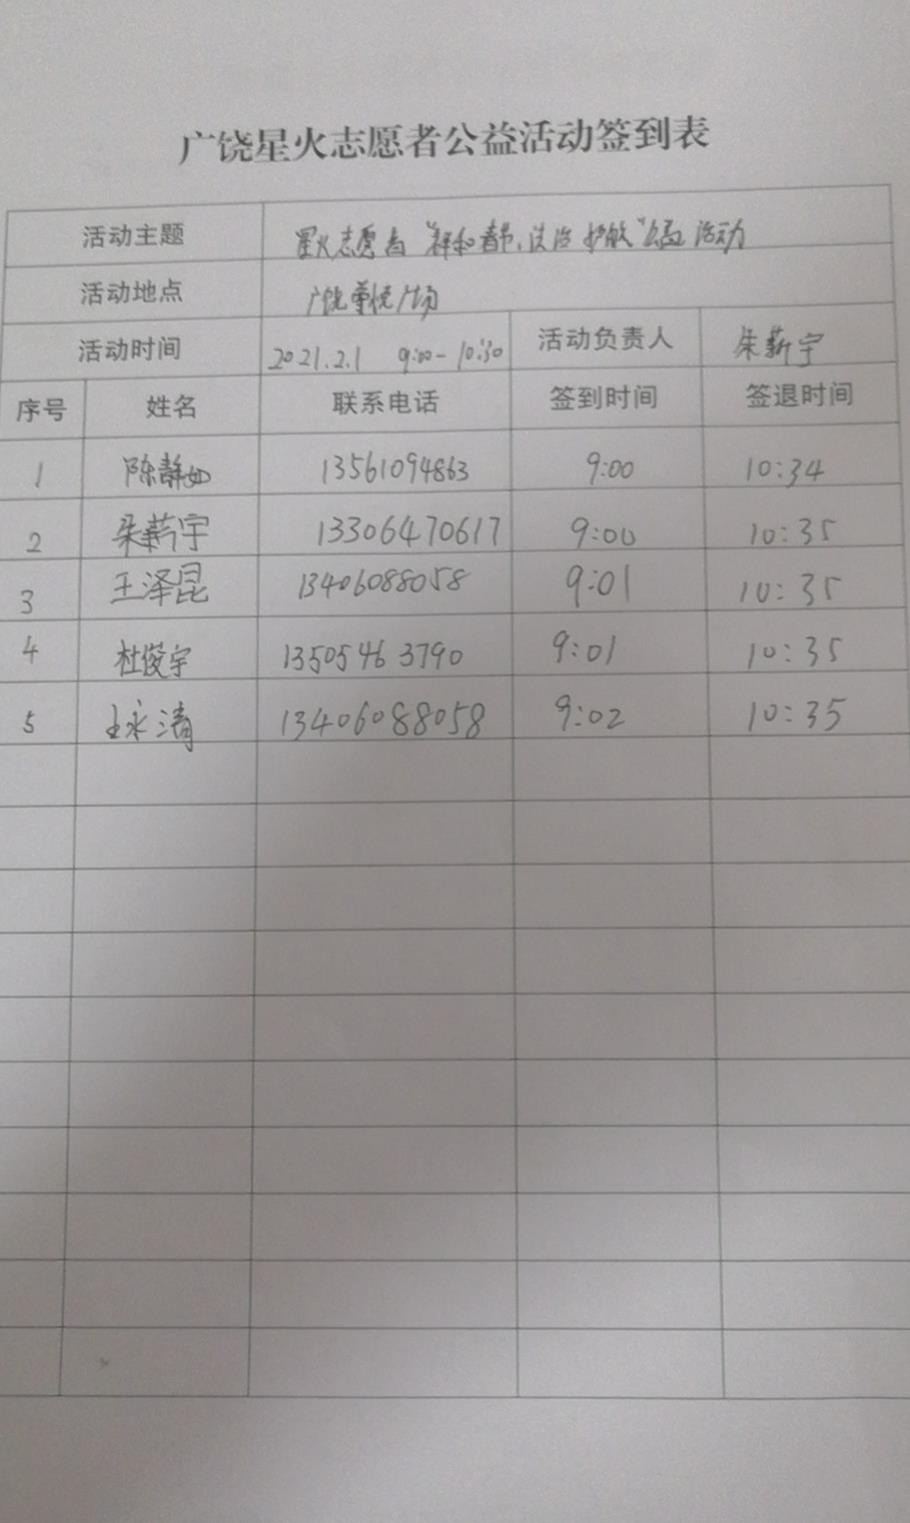 广饶星火志愿者公益活动签到表
活动主题 星火志愿者“祥和春节,法治护航”公益活动
活动地点 广饶 悦广场
活动时间 2021.2.1 9:00-10:30 活动负责人 朱薪宇
序号 姓名 联系电话 签到时间 签退时间
1 陈静如 13561094863 9:00 10:34
2 朱薪宇 13306470617 9:00 10:35
3 王泽昆 13406088058 9:01 10:35
4 杜俊宇 13505463790 9:01 10:35
5 王永清 13406088058 9:02 10:35